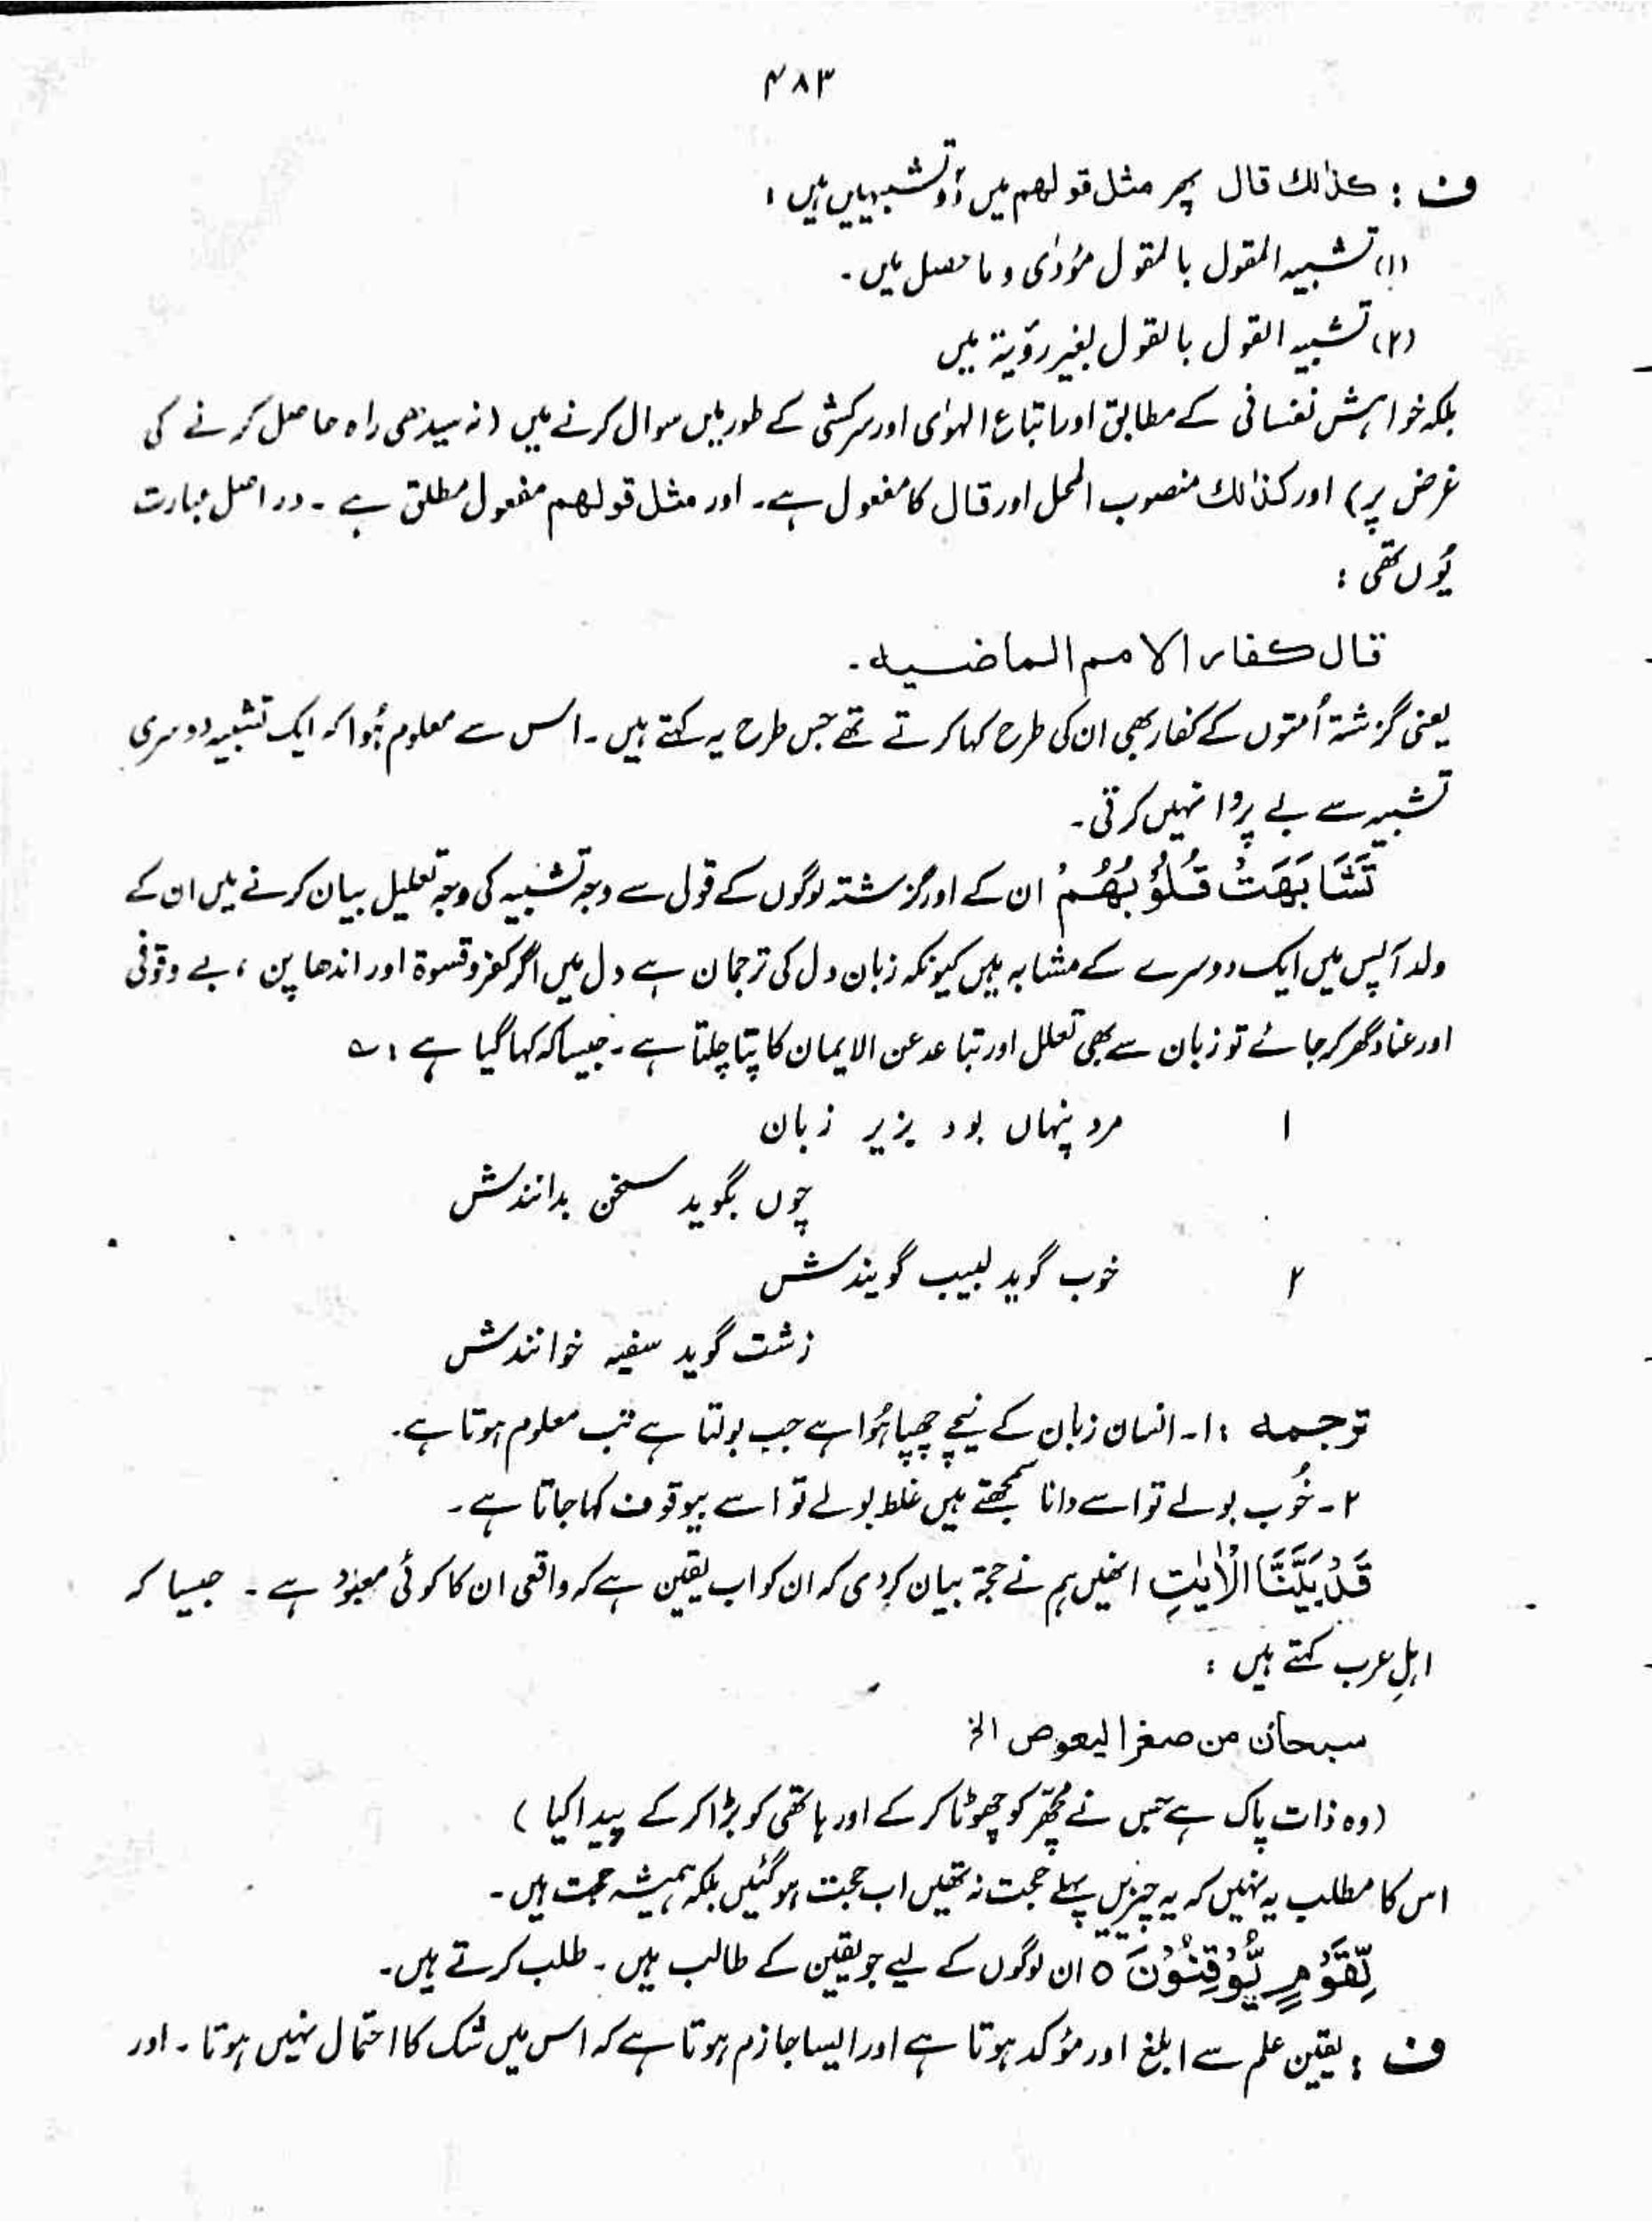 ۴۸۳
ف : کذالك قال پھر مثل قولھم میں دو تشبیہیں ہیں :
(۱) تشبیہ المقول بالمقول مؤدٰی و ماحصل میں ۔
(۲) تشبیہ القول بالقول بغیر رؤیۃ میں
بلکہ خواہش نفسانی کے مطابق اور اتباع الہوٰی اور سرکشی کے طور میں سوال کرنے میں (نہ سیدھی راہ حاصل کرنے کی
غرض پر) اور کذالك منصوب المحل اور قال کا مفعول ہے۔ اور مثل قولھم مفعول مطلق ہے ۔ در اصل عبارت
یُوں تھی :
قال کفار الامم الماضیہ ۔
یعنی گزشتہ اُمتوں کے کفار بھی ان کی طرح کہا کرتے تھے جس طرح یہ کہتے ہیں ۔ اس سے معلوم ہُوا کہ ایک تشبیہ دوسری
تشبیہ سے بے پروا نہیں کرتی ۔
تَشَابَهَتْ قُلُوْبُهُمْ ان کے اور گزشتہ لوگوں کے قول سے وجہ تشبیہ کی وجہ تعلیل بیان کرنے میں ان کے
ولد آپس میں ایک دوسرے کے مشابہ ہیں کیونکہ زبان دل کی ترجمان ہے دل میں اگر کفر و قسوۃ اور اندھا پن ، بے وقوفی
اور عناد گھر کر جائے تو زبان سے بھی تعلل اور تباعد عن الایمان کا پتا چلتا ہے ۔ جیسا کہ کہا گیا ہے : ؎
۱ مرد پنہاں بود بزیر زبان
چوں بگوید سخن بدانندش
۲ خوب گوید لبیب گویندش
زشت گوید سفیہ خوانندش
ترجمہ : ۱ ۔ انسان زبان کے نیچے چھپا ہُوا ہے جب بولتا ہے تب معلوم ہوتا ہے ۔
۲ ۔ خُوب بولے تو اسے دانا سمجھتے ہیں غلط بولے تو اسے بیوقوف کہا جاتا ہے ۔
قَدْ بَيَّنَّا الْاٰيٰتِ انھیں ہم نے حجۃ بیان کر دی کہ ان کو اب یقین ہے کہ واقعی ان کا کوئی معبود ہے ۔ جیسا کہ
اہلِ عرب کہتے ہیں :
سبحان من صغر البعوض الخ
(وہ ذات پاک ہے جس نے مچھّر کو چھوٹا کر کے اور ہاتھی کو بڑا کر کے پیدا کیا )
اس کا مطلب یہ نہیں کہ یہ چیزیں پہلے حجت نہ تھیں اب حجت ہو گئیں بلکہ ہمیشہ حجت ہیں ۔
لِّقَوْمٍ يُّوْقِنُوْنَ ٥ ان لوگوں کے لیے جو یقین کے طالب ہیں ۔ طلب کرتے ہیں ۔
ف : یقین علم سے ابلغ اور مؤکد ہوتا ہے اور ایسا جازم ہوتا ہے کہ اس میں شک کا احتمال نہیں ہوتا ۔ اور